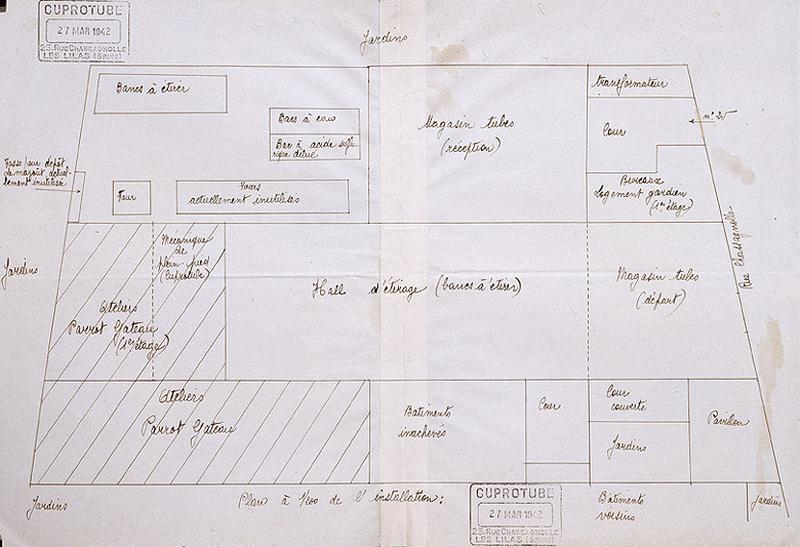 CUPROTUBE
27 MAR 1942
25. RUE CHASSAGNOLLE
LES LILAS (Seine)
Jardins
Bancs à étirer
Bacs à eau
Bac à acide sulfu-
rique dilué
Magasin tubes
(réception)
transformateur
Cour
n° 25
Bureaux
Logement gardien
(1er étage)
Fosse pour dépôt
de mazout actuel-
lement inutilisée
Four
Fours
actuellement inutilisés
Rue Chassagnolle
Jardins
Mécanique
de
plain-pied
(Cuprotube)
Ateliers
Parrot Gateau
(1er étage)
Hall d'étirage (bancs à étirer)
Magasin tubes
(départ)
Ateliers
Parrot Gateau
Batiments
inachevés
Cour
Cour
couverte
Jardins
Pavillon
Jardins
Plan à 1/200 de l'installation:
CUPROTUBE
27 MAR 1942
25. RUE CHASSAGNOLLE
LES LILAS (Seine)
Bâtiments
voisins
Jardins